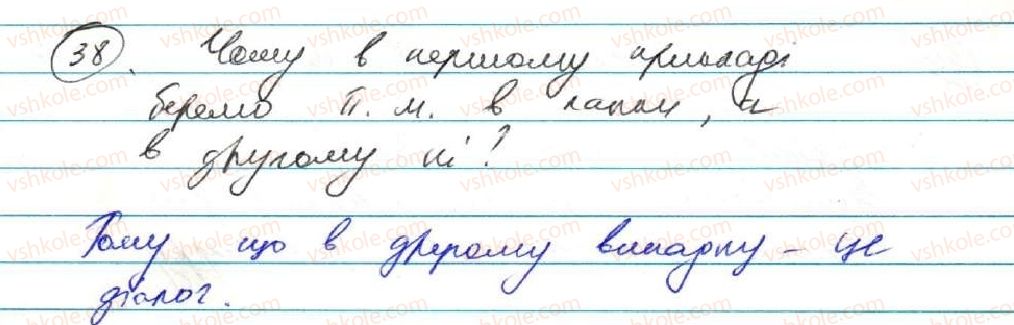 38. Чому в першому прикладі
беремо П. м. в лапки, а
в другому ні?
Тому що в другому випадку - це
діалог.